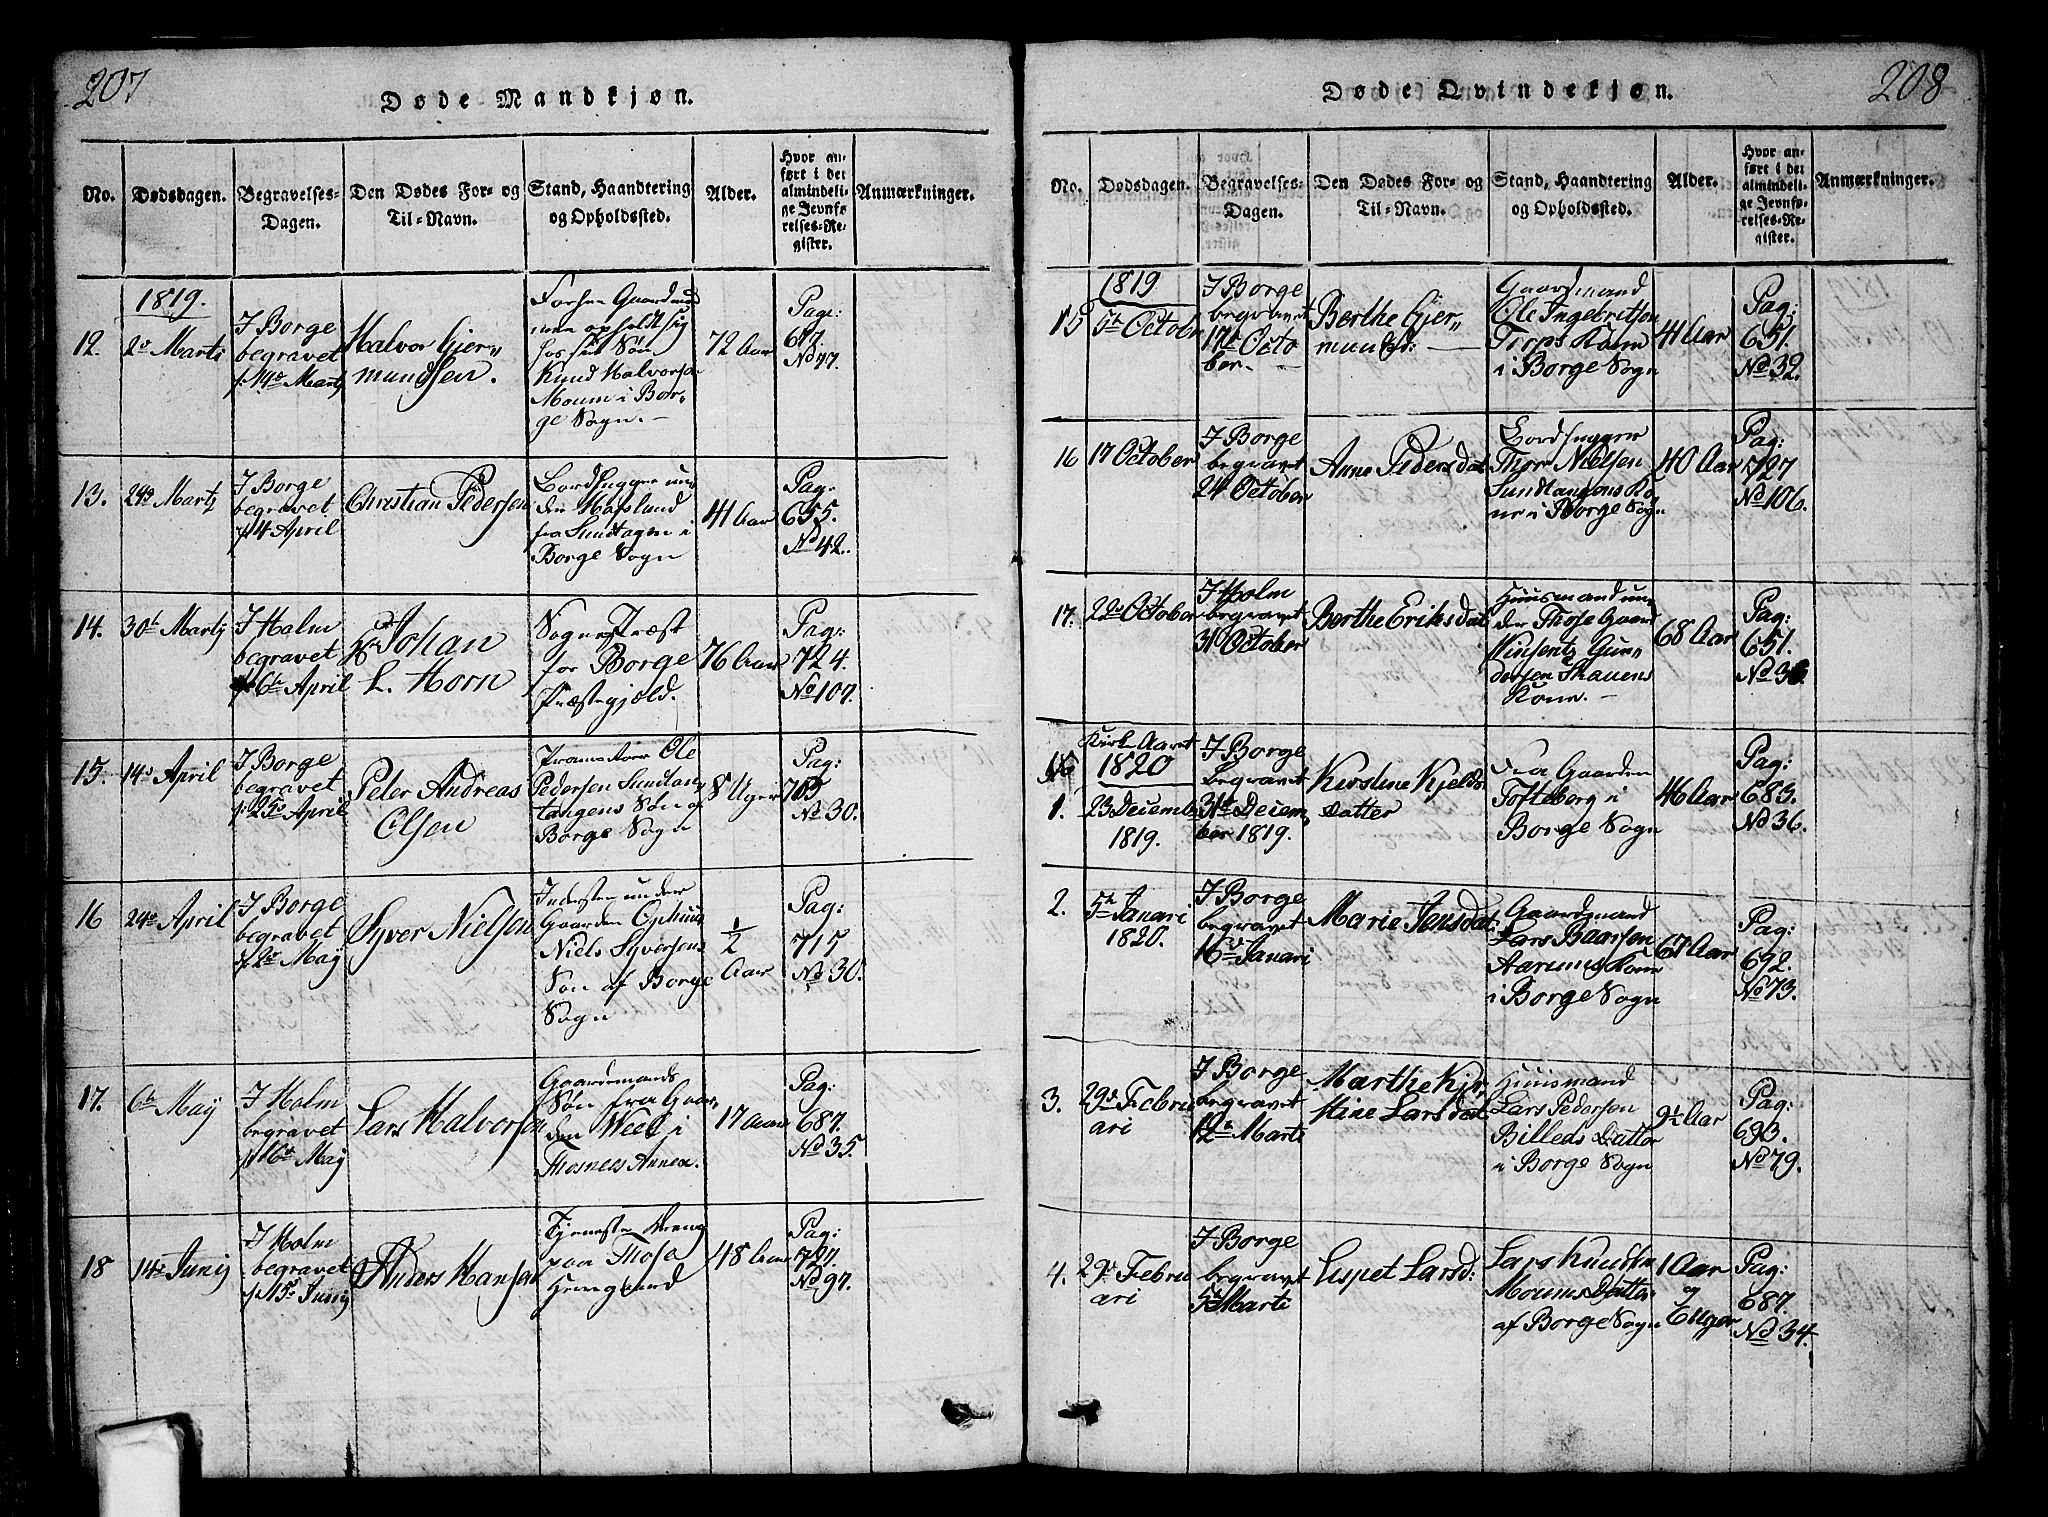 207
Døde Mandkjøn.
No.
Dødsdagen.
Begravelses-
Dagen.
Den Dødes For- og
Til-Navn.
Stand, Haandtering
og Opholdssted.
Alder.
Hvor an-
ført i det
almindeli-
ge Jevnfø-
relses-Re-
gister.
Anmærkninger.
1819.
12.
2de Marti
I Borge
begravet
14de Marti
Halvor Gjer-
mundsen.
opholdt sig
hos sin Søn
Knud Halvorsen
Moum i Bor-
ge Sogn.
72 Aar
Pag:
No 47.
13.
24de Marti
I Borge
begravet
4 April
Christian Pedersen
Bordhugger un-
der Hafslund
fra Sundtagen i
Borge Sogn
41 Aar
Pag:
655.
No 42.
14.
30te Martii
I Holm
begravet
6te April
Hr Johan
L. Horn
Sogne Præst
for Borge
Præstegjeld.
76 Aar
Pag:
724.
No 107.
15.
14de April
I Borge
begravet
25de April
Peter Andreas
Olsen
Ole
Pedersen Sundtan-
tangens Søn af
Borge Sogn
8 Uger
Pag:
705
No 30.
16
24de April
I Borge
begravet
2de May
Syver Nielsen
Inderste under
Gaarden Ophuus
Niels Syversens
Søn af Borge
Sogn
1/2
Aar
Pag:
715
No 30.
17.
6te May
I Holm
begravet
16de May
Lars Halvorsen
Gaardmands
Søn fra Gaar-
den Weel i
Thosnes Annex.
17 Aar
Pag:
687.
No 35.
18
14de Junij
I Holm
begravet
Junij
Anders Hansen
Tjeneste Dreng
paa Those
48 Aar
Pag:
727.
No 97.
208
Døde Qvindekjøn.
No.
Dødsdagen.
Begravelses-
Dagen.
Den Dødes For- og
Til-Navn.
Stand, Haandtering
og Opholdssted.
Alder.
Hvor an-
ført i det
almindeli-
ge Jevnfø-
relses-Re-
gister.
Anmærkninger.
1819
15
5te October
I Borge
begravet
17de Octo
ber.
Berthe Gjer-
munds:
Gaardmand
Ole Ingebritsen
Torps Kone
i Borge Sogn
41 Aar
Pag:
651.
No 32.
16
17 October
I Borge
begravet
24 October
Anne Pedersdat
Bordhugger
Thor Nielsen
Sundtangens Ko
ne i Borge Sogn
40 Aar
Pag:
727
No 106.
17.
22de October
I Holm
begravet
31 October
Berthe Eriksdat
Huusmand un-
der Those Gaard
Vinsents Gun-
dersen Skauens
Kone.
68 Aar
Pag:
651.
Kirke Aaret
1820
1.
23 Decemb
1819.
I Borge
begravet
31te Decem-
ber 1819.
Kirstine Kjelds
Datter
Fra Gaarden
Tofteberg i
Borge Sogn
46 Aar
Pag:
683.
No 36.
2.
5te Januari
1820.
I Borge
begravet
16de Januari
Marie Jensdat:
Gaardmand
Lars Baarsen
Aarums Kone
i Borge Sogn
67 Aar
Pag:
692.
No 73.
3.
29de Febru
ari
I Borge
begravet
12te Marti
Marthe Kjer
stine Larsdat
Huusmand
Lars Pedersen
Billeds Datter
i Borge Sogn
9½ Aar
Pag:
693.
No 79.
4.
29de Febru
ari
I Borge
begravet
5te Marti
Lispet Larsd:
Lars Knudsen
Moums Datter
af Borge Sogn
1 Aar
og
6 Uger
Pag:
687.
No 34